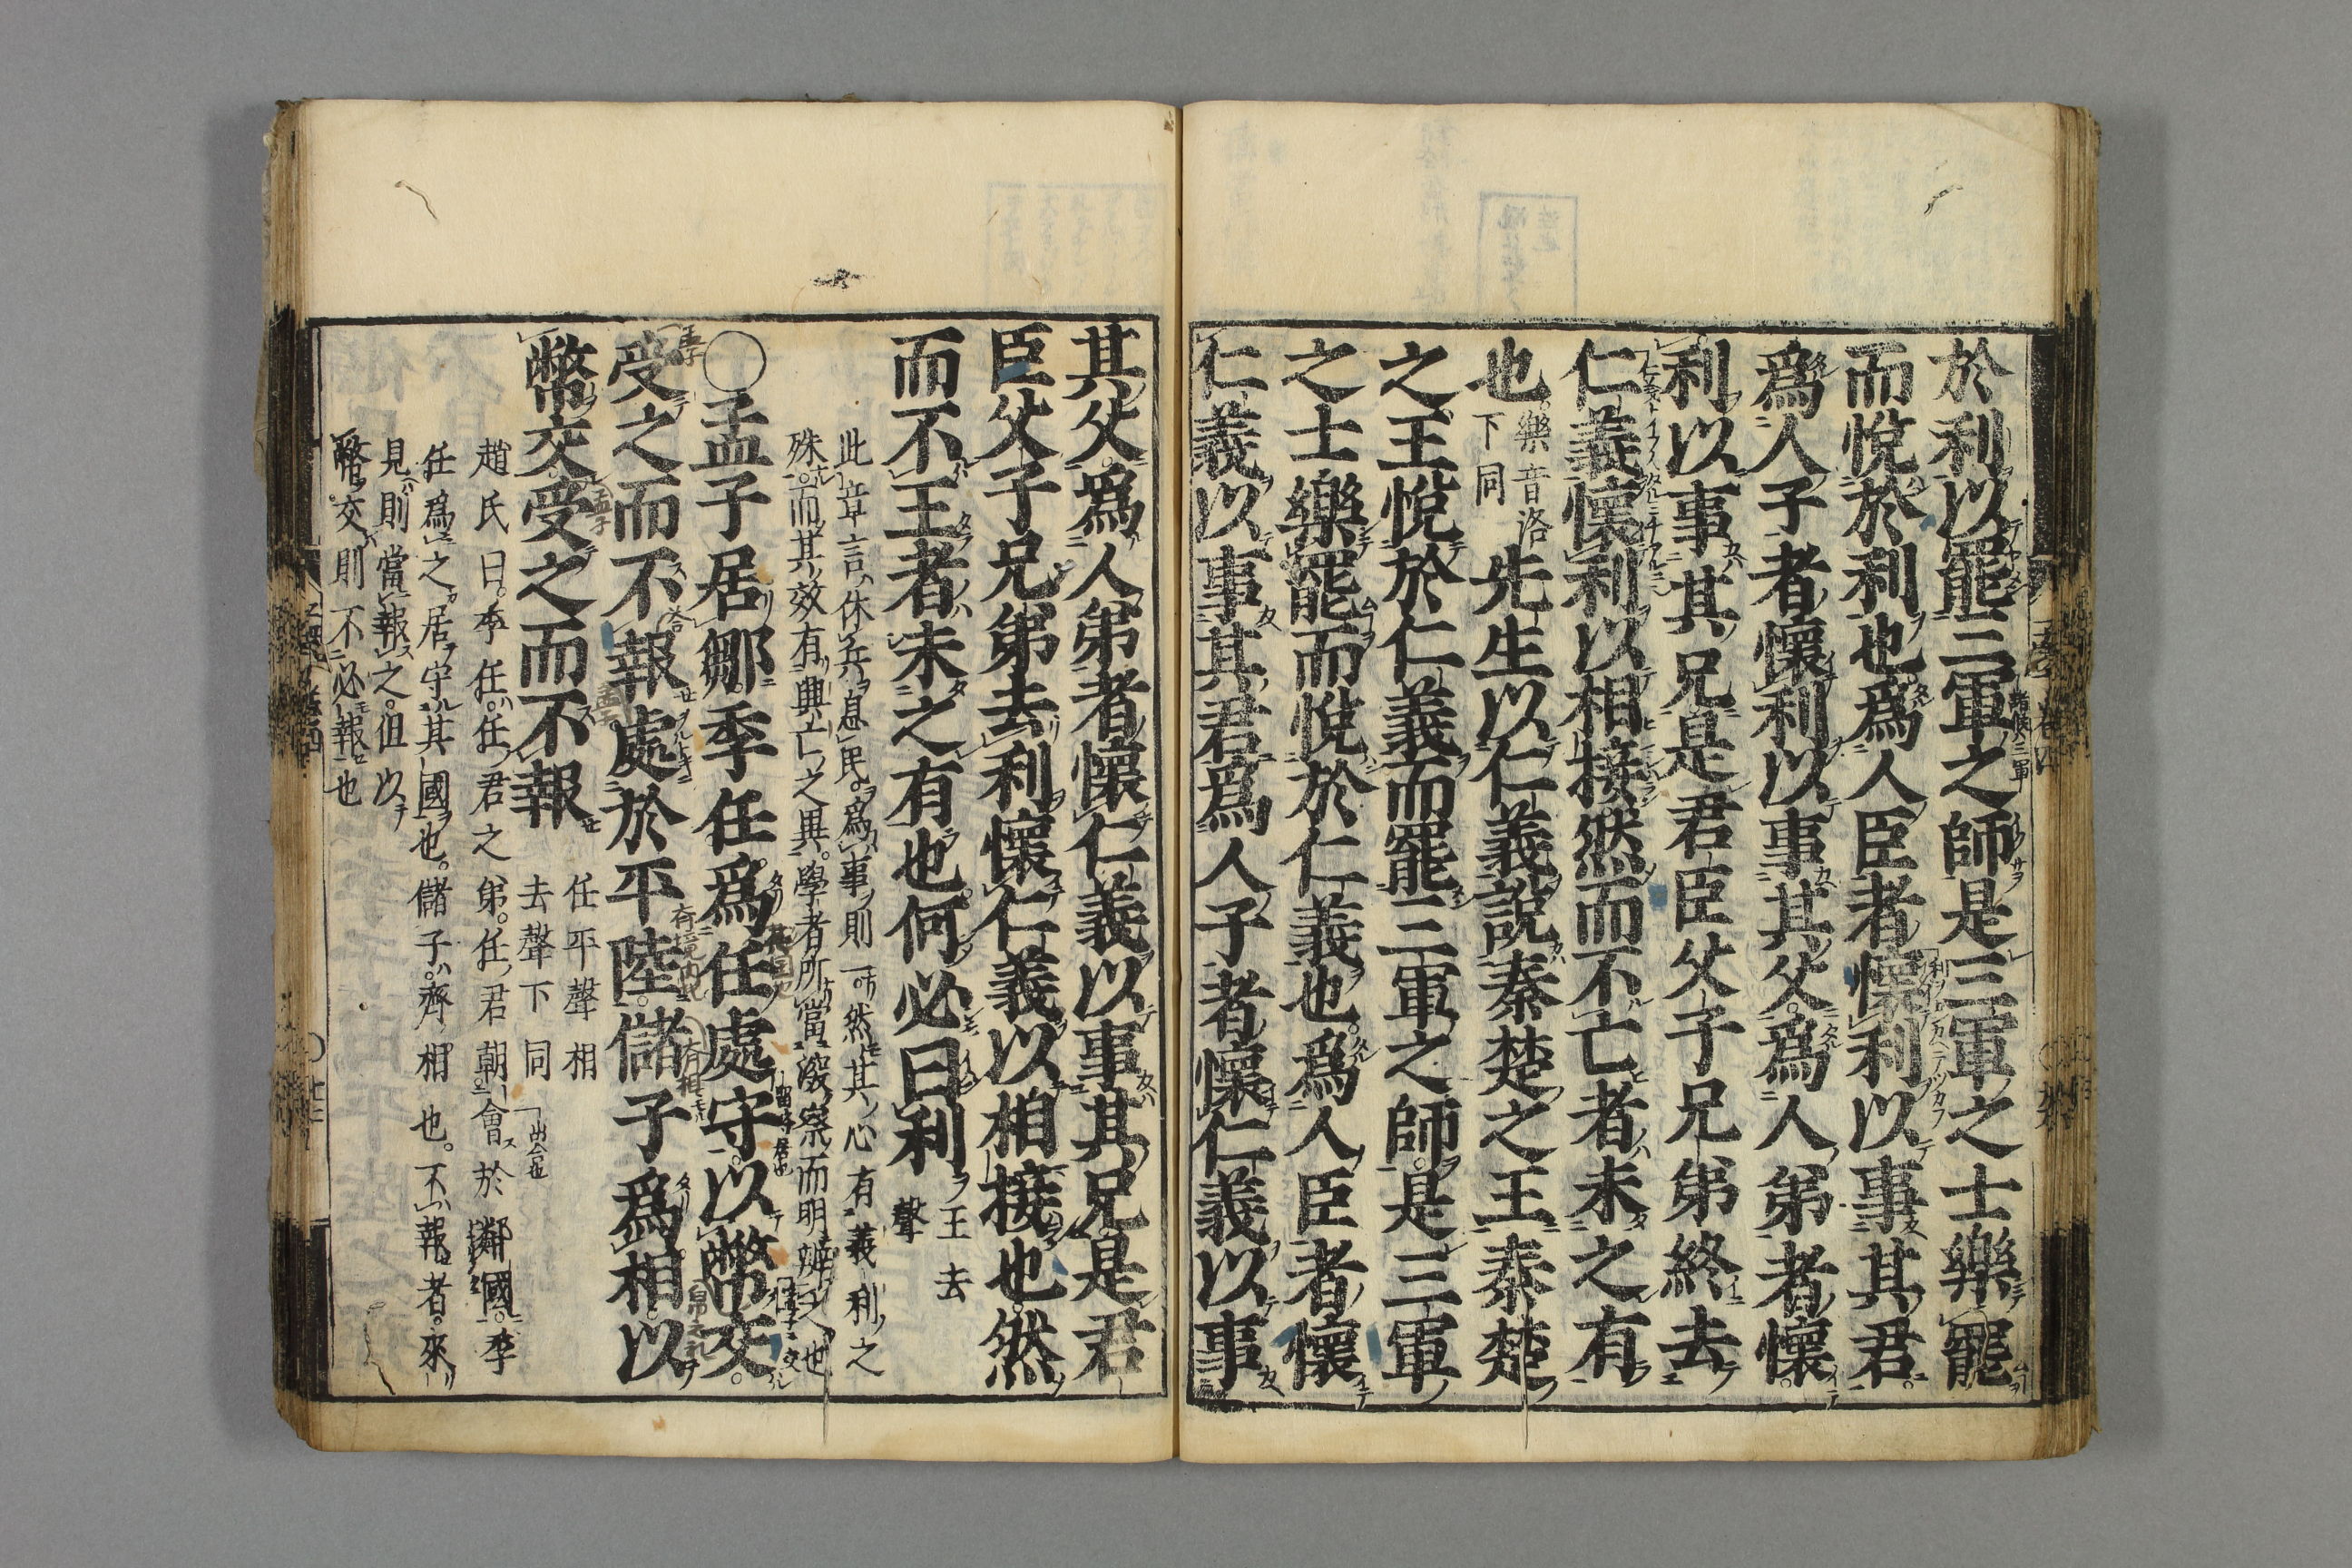 於利以罷三軍之師是三軍之士樂罷
而悅於利也爲人臣者懷利以事其君
爲人子者懷利以事其父爲人弟者懷
利以事其兄是君臣父子兄弟終去
仁義懷利以相接然而不亡者未之有
也。樂音洛下同 先生以仁義說秦楚之王秦楚
之王悅於仁義而罷三軍之師是三軍
之士樂罷而悅於仁義也爲人臣者懷
仁義以事其君爲人子者懷仁義以事
其父爲人弟者懷仁義以事其兄是君
臣父子兄弟去利懷仁義以相接也然
而不王者未之有也何必曰利 王去聲
此章言休兵息民。爲事則一。然其心有義利之
殊。而其效有興亡之異。學者所當深察而明辨之也
○孟子居鄒季任爲任處守以幣交。
受之而不報處於平陸儲子爲相以
幣交。受之而不報 任平聲相去聲下同
趙氏曰。季任。任君之弟。任君朝會於鄰國。季
任爲之居守其國也。儲子。齊相也。不報者。來
見則當報之。但以
幣交則不必報也